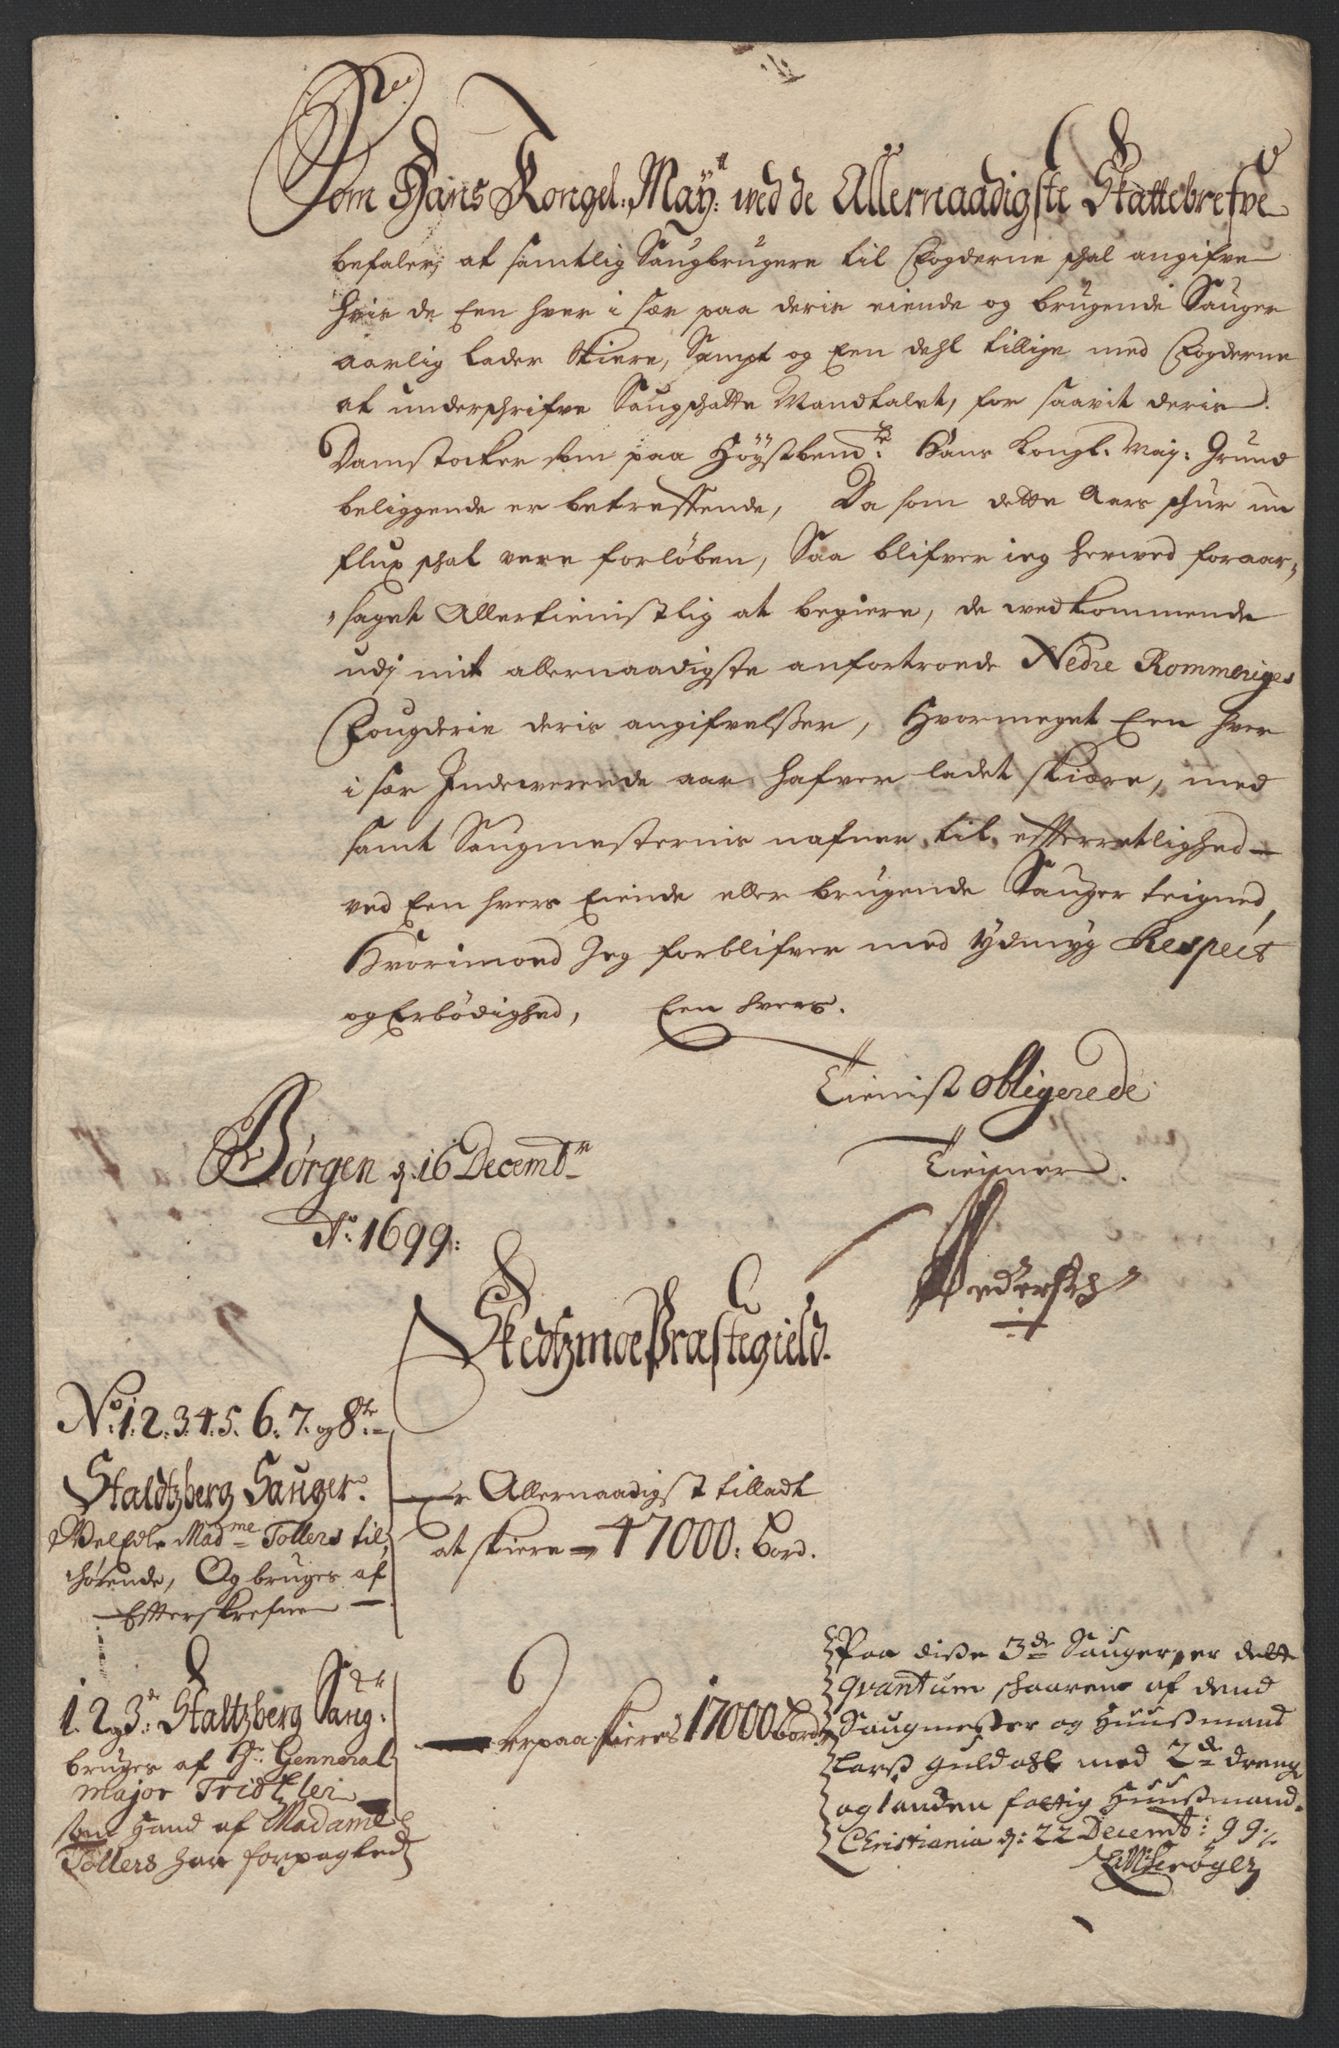 Som Hans Kongel: May:tt ved de Allernaadigste Skattebrefve
befaler, at samtlig Saugbrugere til Fogderne skal angifve
hvis de Een hver i sær paa deris eiende og brugende Sauger
aarlig lader skiere, Sampt og Een dehl tillige med Fogderne
at underschrifve Saugskatte Mandtalet, for saavit deris
Damstocker som paa Høystbemte: Hans Kongl: May: Grund
beliggende er betreffende, Da som dette Aars skur nu
flux skal vere forløben, Saa blifver ieg herved foraar-
saget Allertienistlig at begiere, de vedkommende
udj mit allernaadigste anfortroede Nedre Rommeriges
Fougderie deris angifvelsser, Hvormeget Een hver
i sær Indeværende aar hafver ladet skiære, med
samt Saugmesternis nafner til efterretlighed
ved Een hvers Eiende eller brugende Sauger teigned,
Hvorimoed Jeg forblifver med ydmyg Respect
og Erbødighed, Een hvers.
Tienist obligerede
Børgen d. 16 Decembr
Tieiner.
Ao. 1699.
Skedtzmoe Præstegield.
No. 1. 2. 3. 4. 5. 6. 7. og 8te
Staldtzberg Sauger.
Velædle Madme Tollers til-
hørende, Og bruges af
Efterskrefne
Er Allernaadigst tilladt
at skiere 47000: Bord.
1. 2 og 3de Staltzberg Saug
bruges af Hr. Genneral
major Tridtzler
som Hand af Madame
Tollers har forpagted
erpaa skieres 17000 Bord
Paa disse 3de Sauger, er dette
qvantum skaaren af dend
Saugmester og Huusmand
Larss Guldahl med 2de dreng
og anden fattig Huusmand.
Christiania d: 22 Decemb: 99.